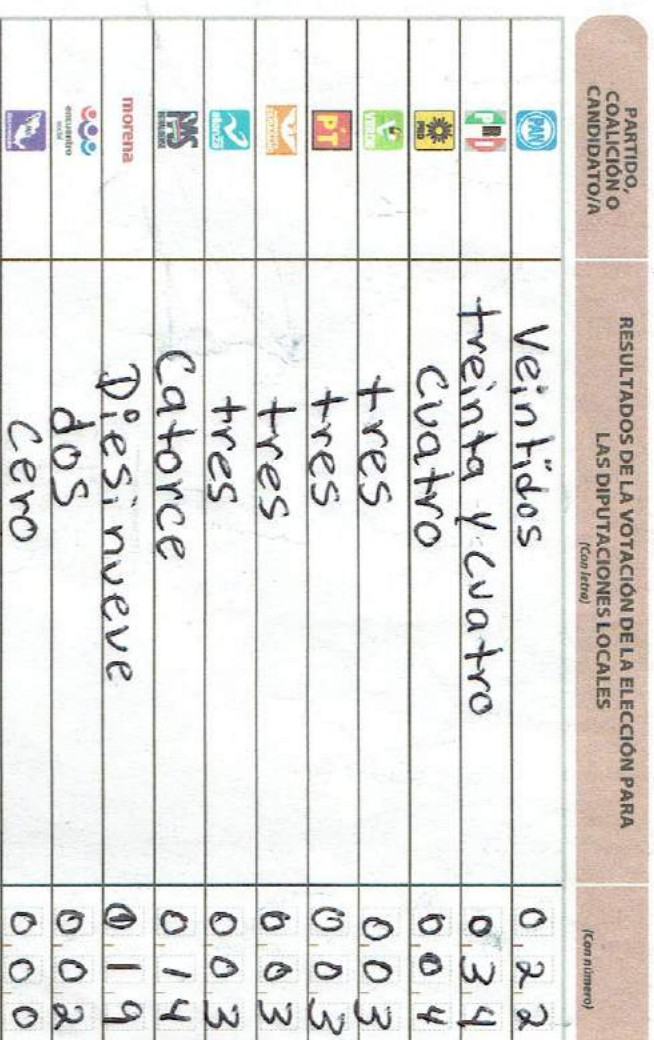 PARTIDO,
COALICIÓN O
CANDIDATO/A
RESULTADOS DE LA VOTACIÓN DE LA ELECCIÓN PARA
LAS DIPUTACIONES LOCALES
(Con letra)
(Con número)
PAN Veintidos 0 2 2
PRI treinta y cuatro 0 3 4
PRD cuatro 0 0 4
VERDE tres 0 0 3
PT tres 0 0 3
tres 0 0 3
alianza tres 0 0 3
Catorce 0 1 4
morena Diesinueve 0 1 9
encuentro social dos 0 0 2
Cero 0 0 0